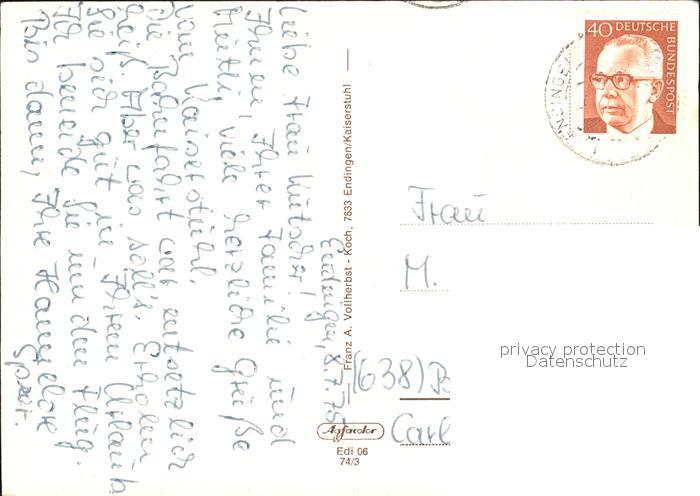 Endingen, 8.7.75
Liebe Frau Kutscher!
Ihnen, Ihrer Familie und
Mutti, viele herzliche Grüße
vom Kaiserstuhl.
Die Bahnfahrt war entsetzlich
heiß. Aber was soll's. Erholen
Sie sich gut in Ihrem Urlaub.
Ich beneide Sie um den Flug.
Bis dann, Ihre Hannelore
Franz A. Vollherbst - Koch, 7833 Endingen/Kaiserstuhl
Agfacolor
Edi 06
74/3
40 DEUTSCHE
BUNDESPOST
ENDINGEN
Frau
M.
privacy protection
Datenschutz
(638)
Carl